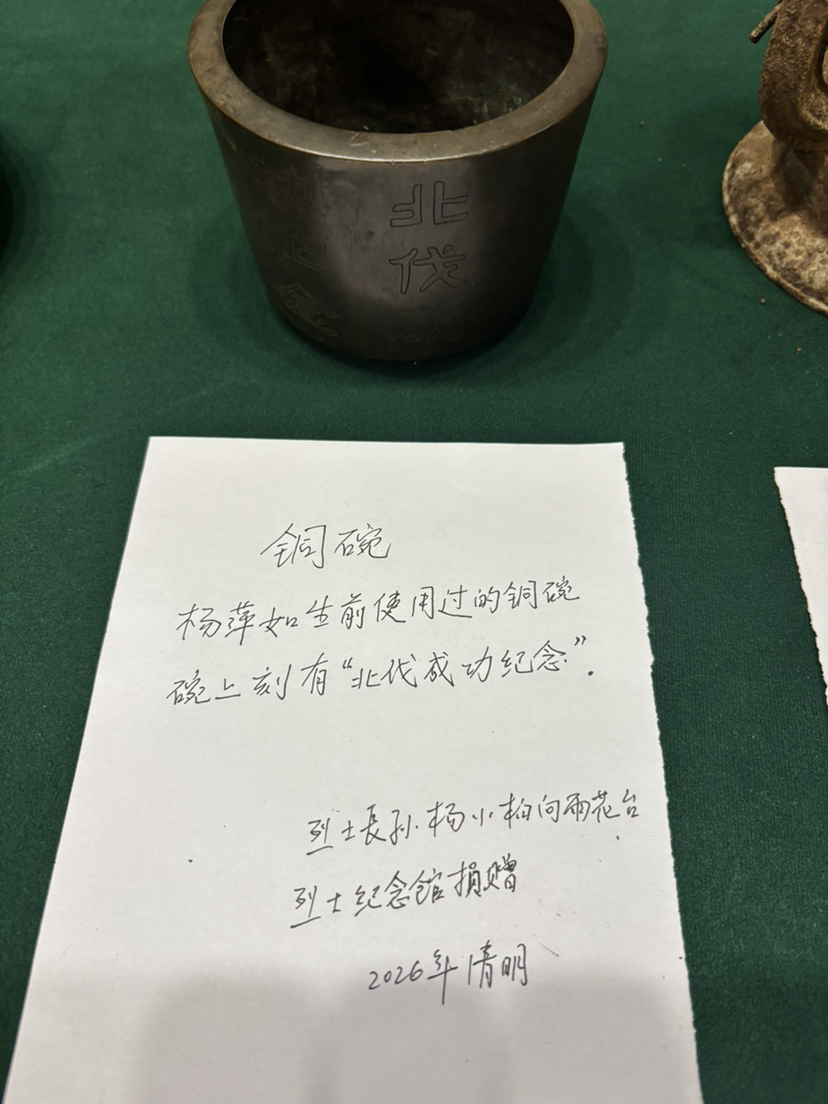 北伐成
铜碗
杨萍如生前使用过的铜碗
碗上刻有“北伐成功纪念”.
烈士長孙·杨小柏向雨花台
烈士纪念馆捐赠
2026年清明